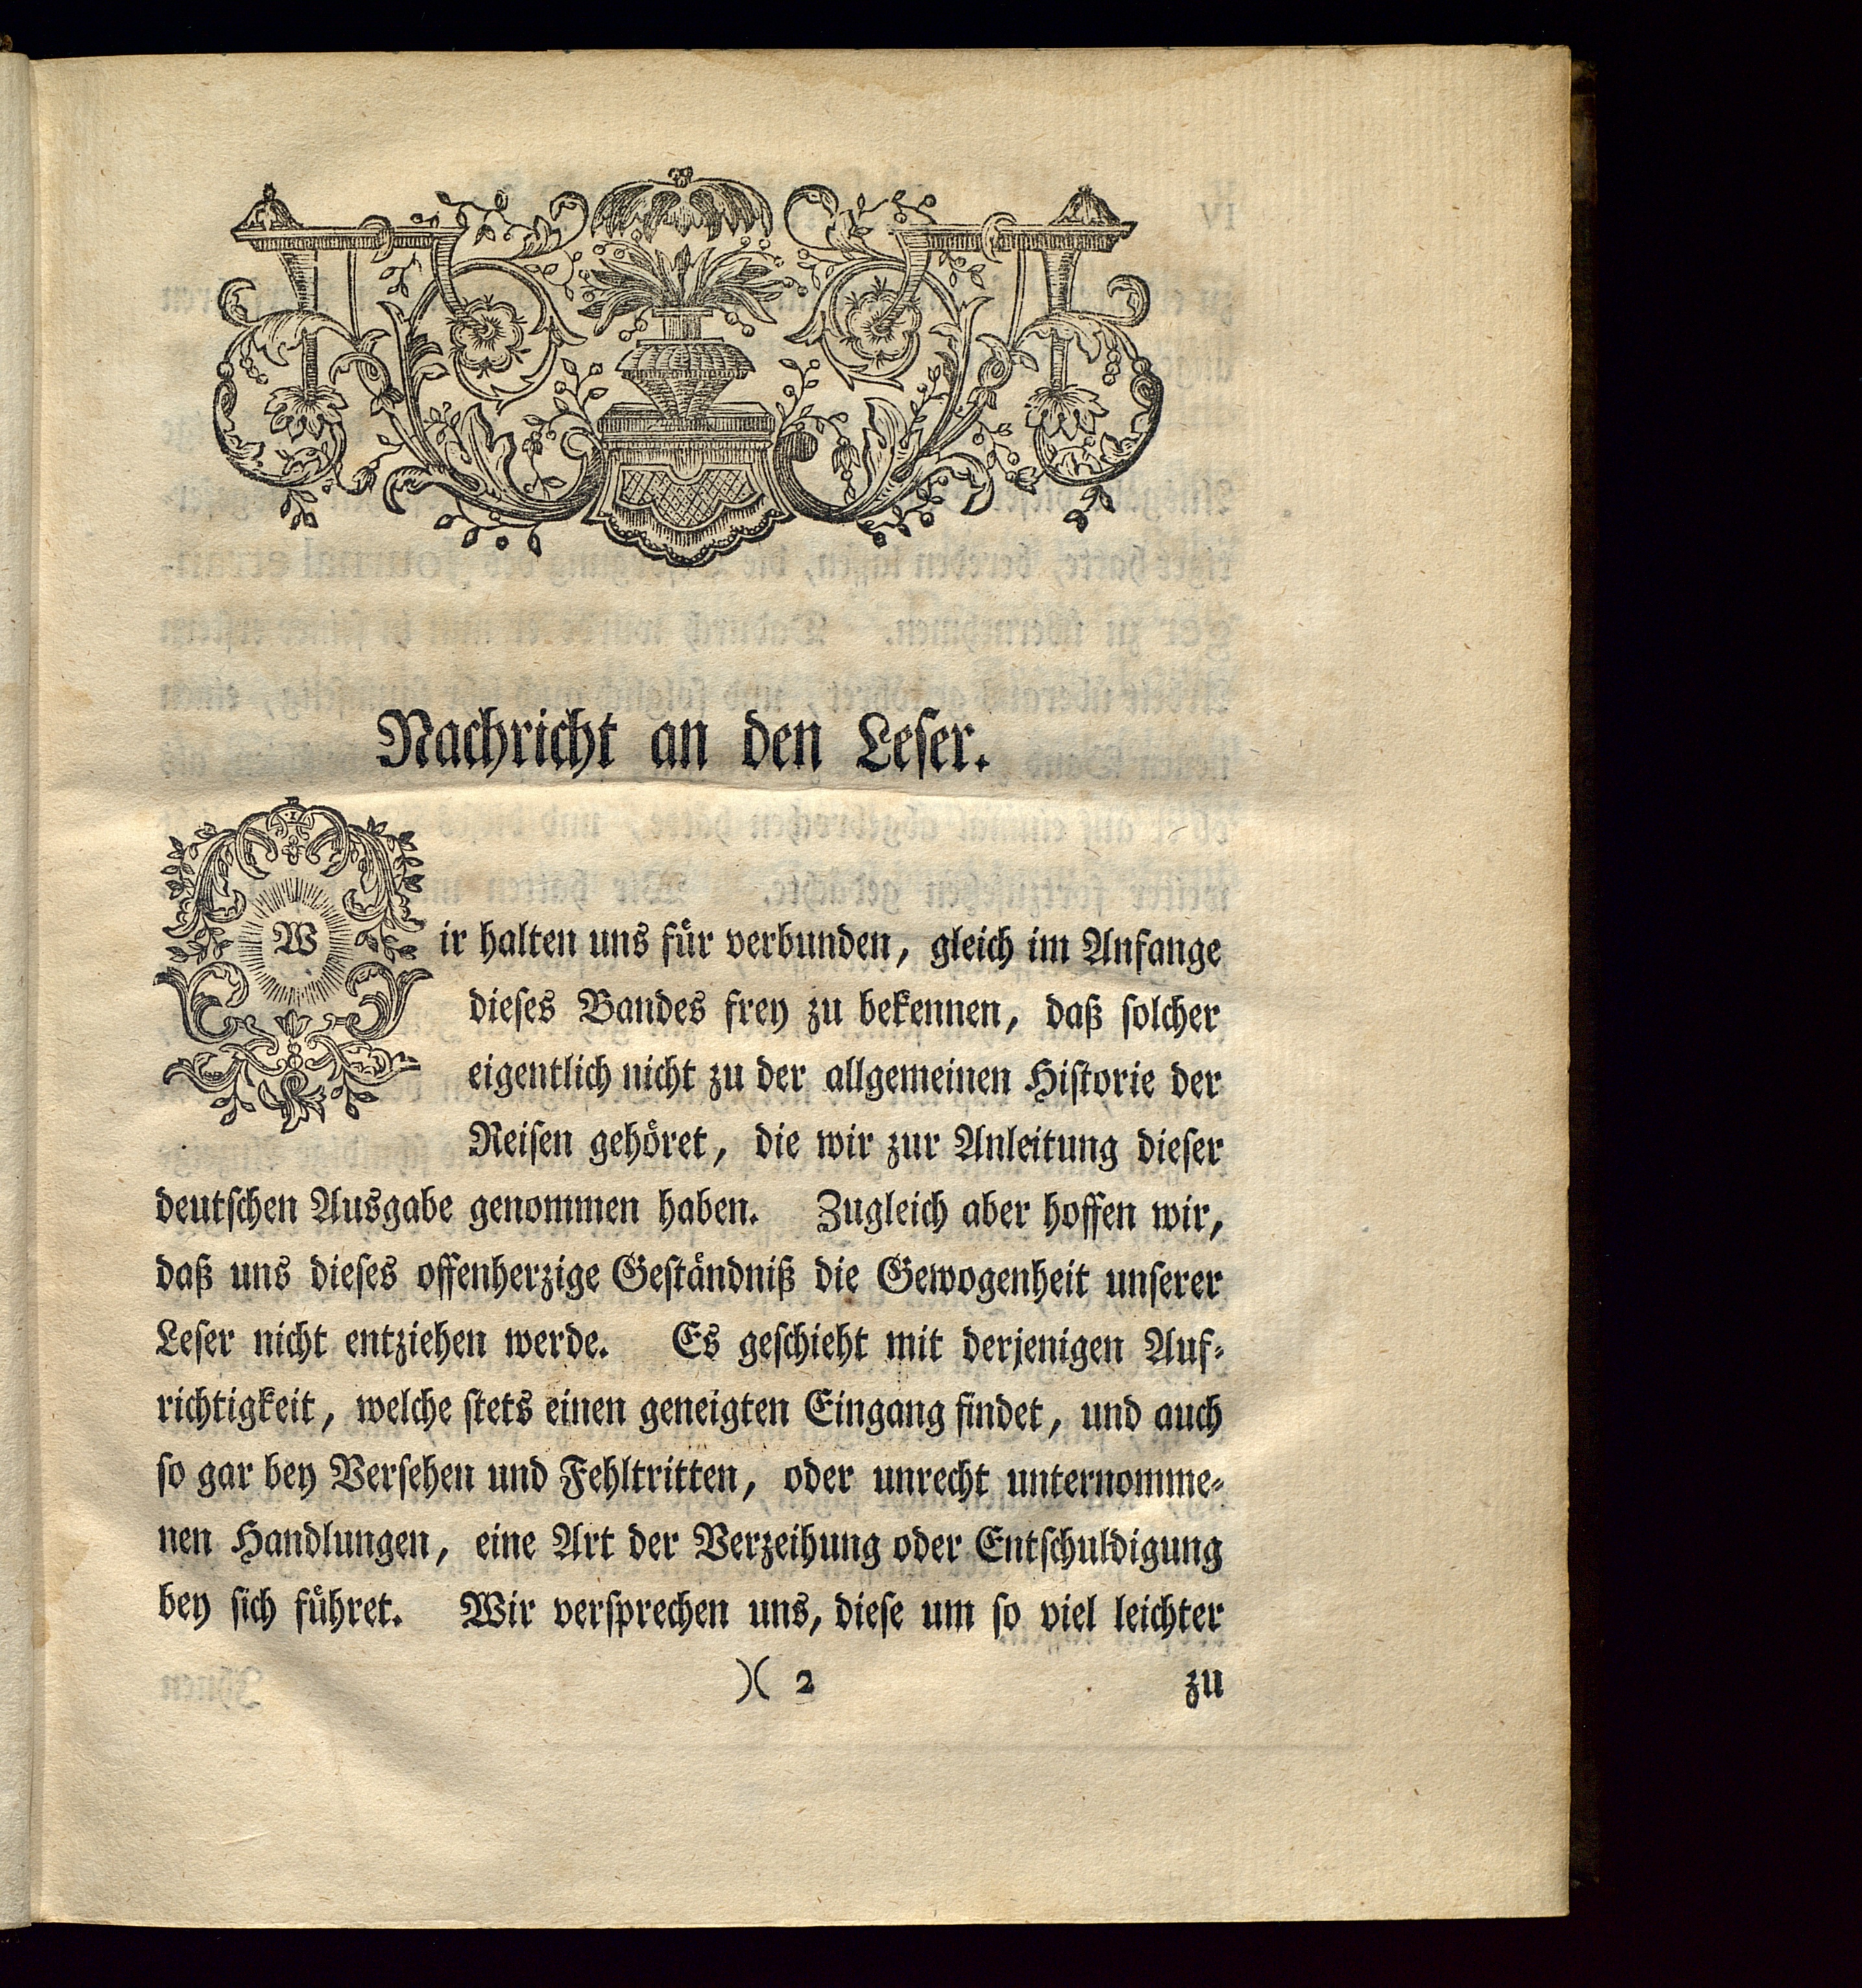 Nachricht an den Leser.
Wir halten uns für verbunden, gleich im Anfange
dieses Bandes frey zu bekennen, daß solcher
eigentlich nicht zu der allgemeinen Historie der
Reisen gehöret, die wir zur Anleitung dieser
deutschen Ausgabe genommen haben. Zugleich aber hoffen wir,
daß uns dieses offenherzige Geständniß die Gewogenheit unserer
Leser nicht entziehen werde. Es geschieht mit derjenigen Auf-
richtigkeit, welche stets einen geneigten Eingang findet, und auch
so gar bey Versehen und Fehltritten, oder unrecht unternomme-
nen Handlungen, eine Art der Verzeihung oder Entschuldigung
bey sich führet. Wir versprechen uns, diese um so viel leichter
)( 2 zu